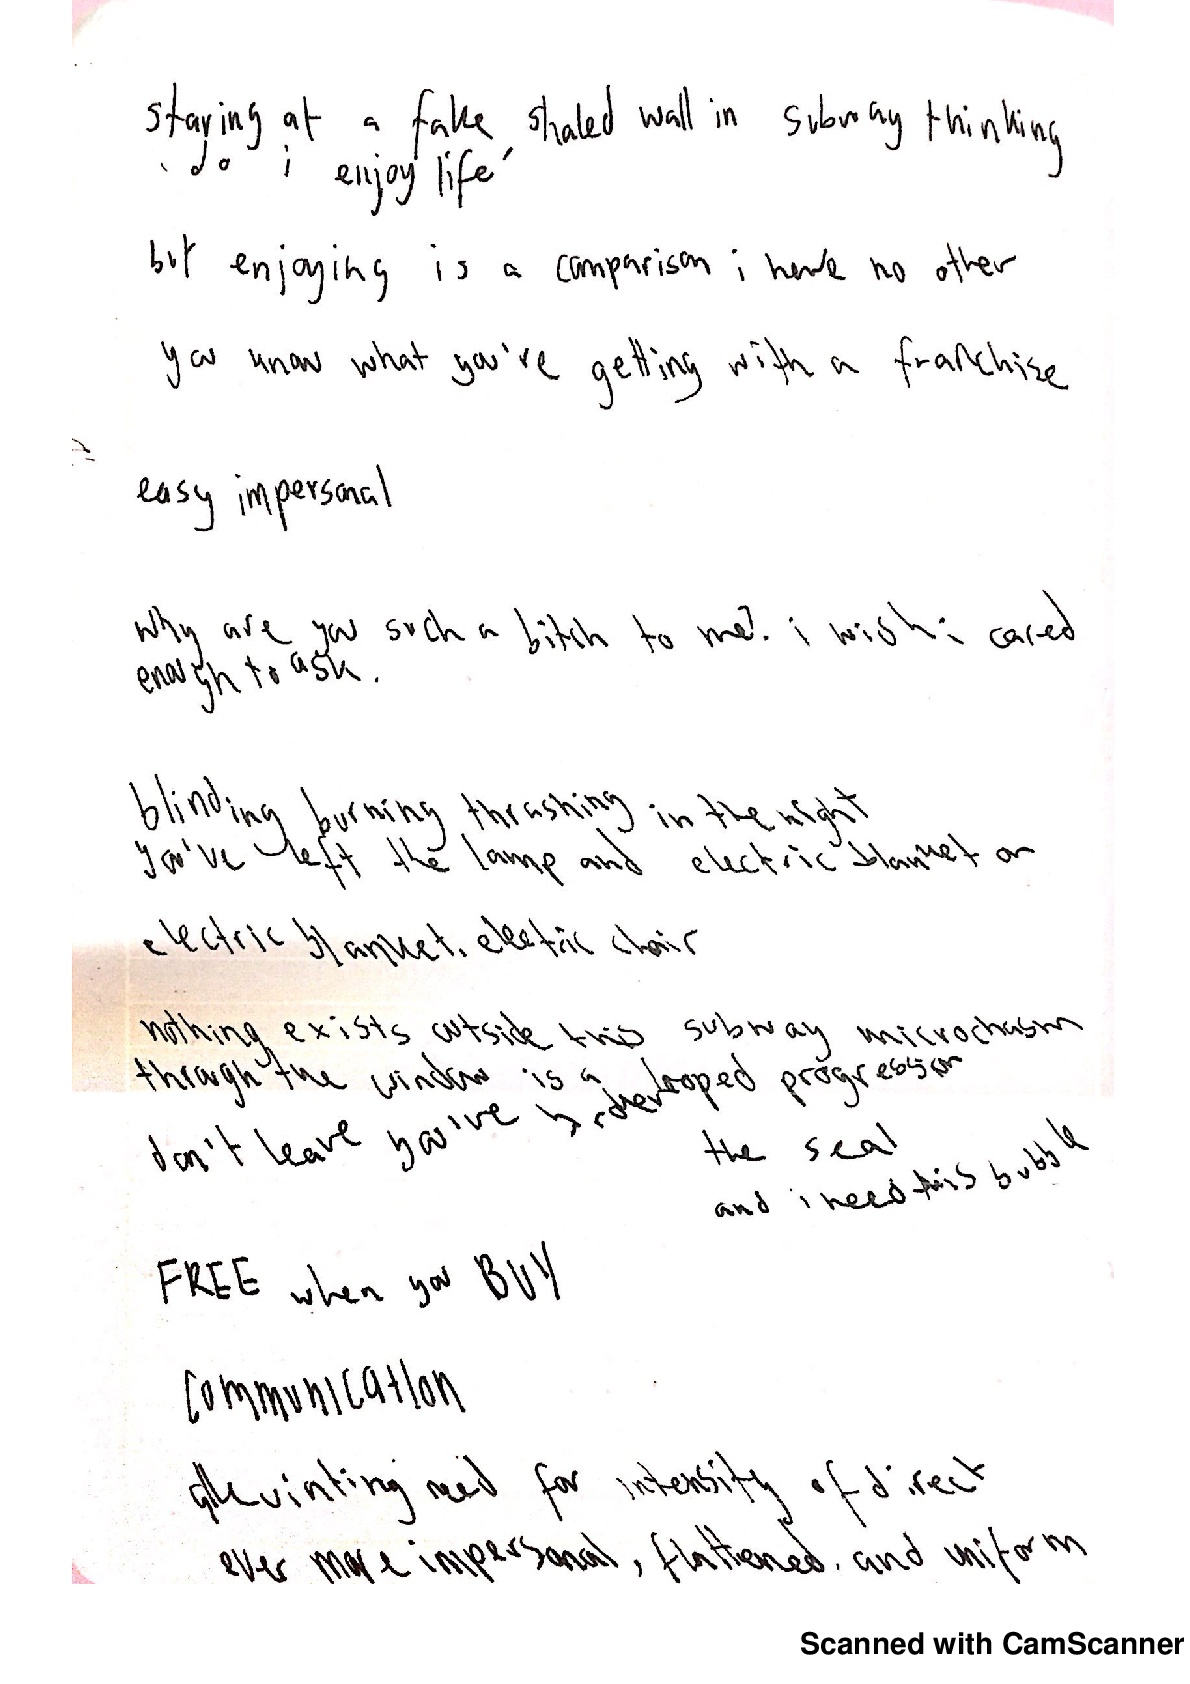 staring at a fake shaled wall in subway thinking
'do i enjoy life'
but enjoying is a comparison i have no other
you know what you're getting with a franchise
easy impersonal
why are you such a bitch to me? i wish i cared
enough to ask.
blinding burning thrashing in the night
you've left the lamp and electric blanket on
electric blanket. electric chair
nothing exists outside this subway microchasm
through the window is a looped progression
don't leave you've
the seal
and i need this bubble
FREE when you BUY
COMMUNICATION
alleviating need for intensity of direct
ever more impersonal, flattened, and uniform
Scanned with CamScanner